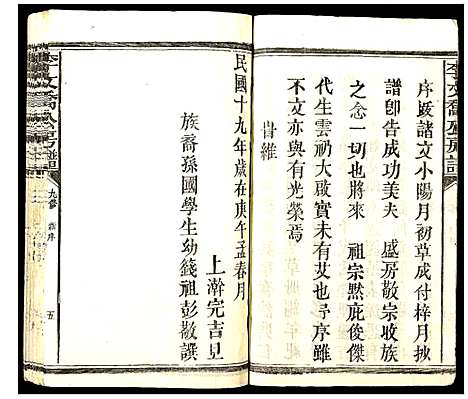 序跋諸文小陽月初草成付梓月抄
譜卽告成功美夫　盛房敬宗收族
之念一切也將來　祖宗黙庇俊傑
代生雲礽大啟實未有艾也予序雖
不文亦與有光榮焉
旹維
民國十九年歲在庚午孟春月
上澣完吉旦
族裔孫國學生幼籛祖彭敬撰
李文喬公房譜
五